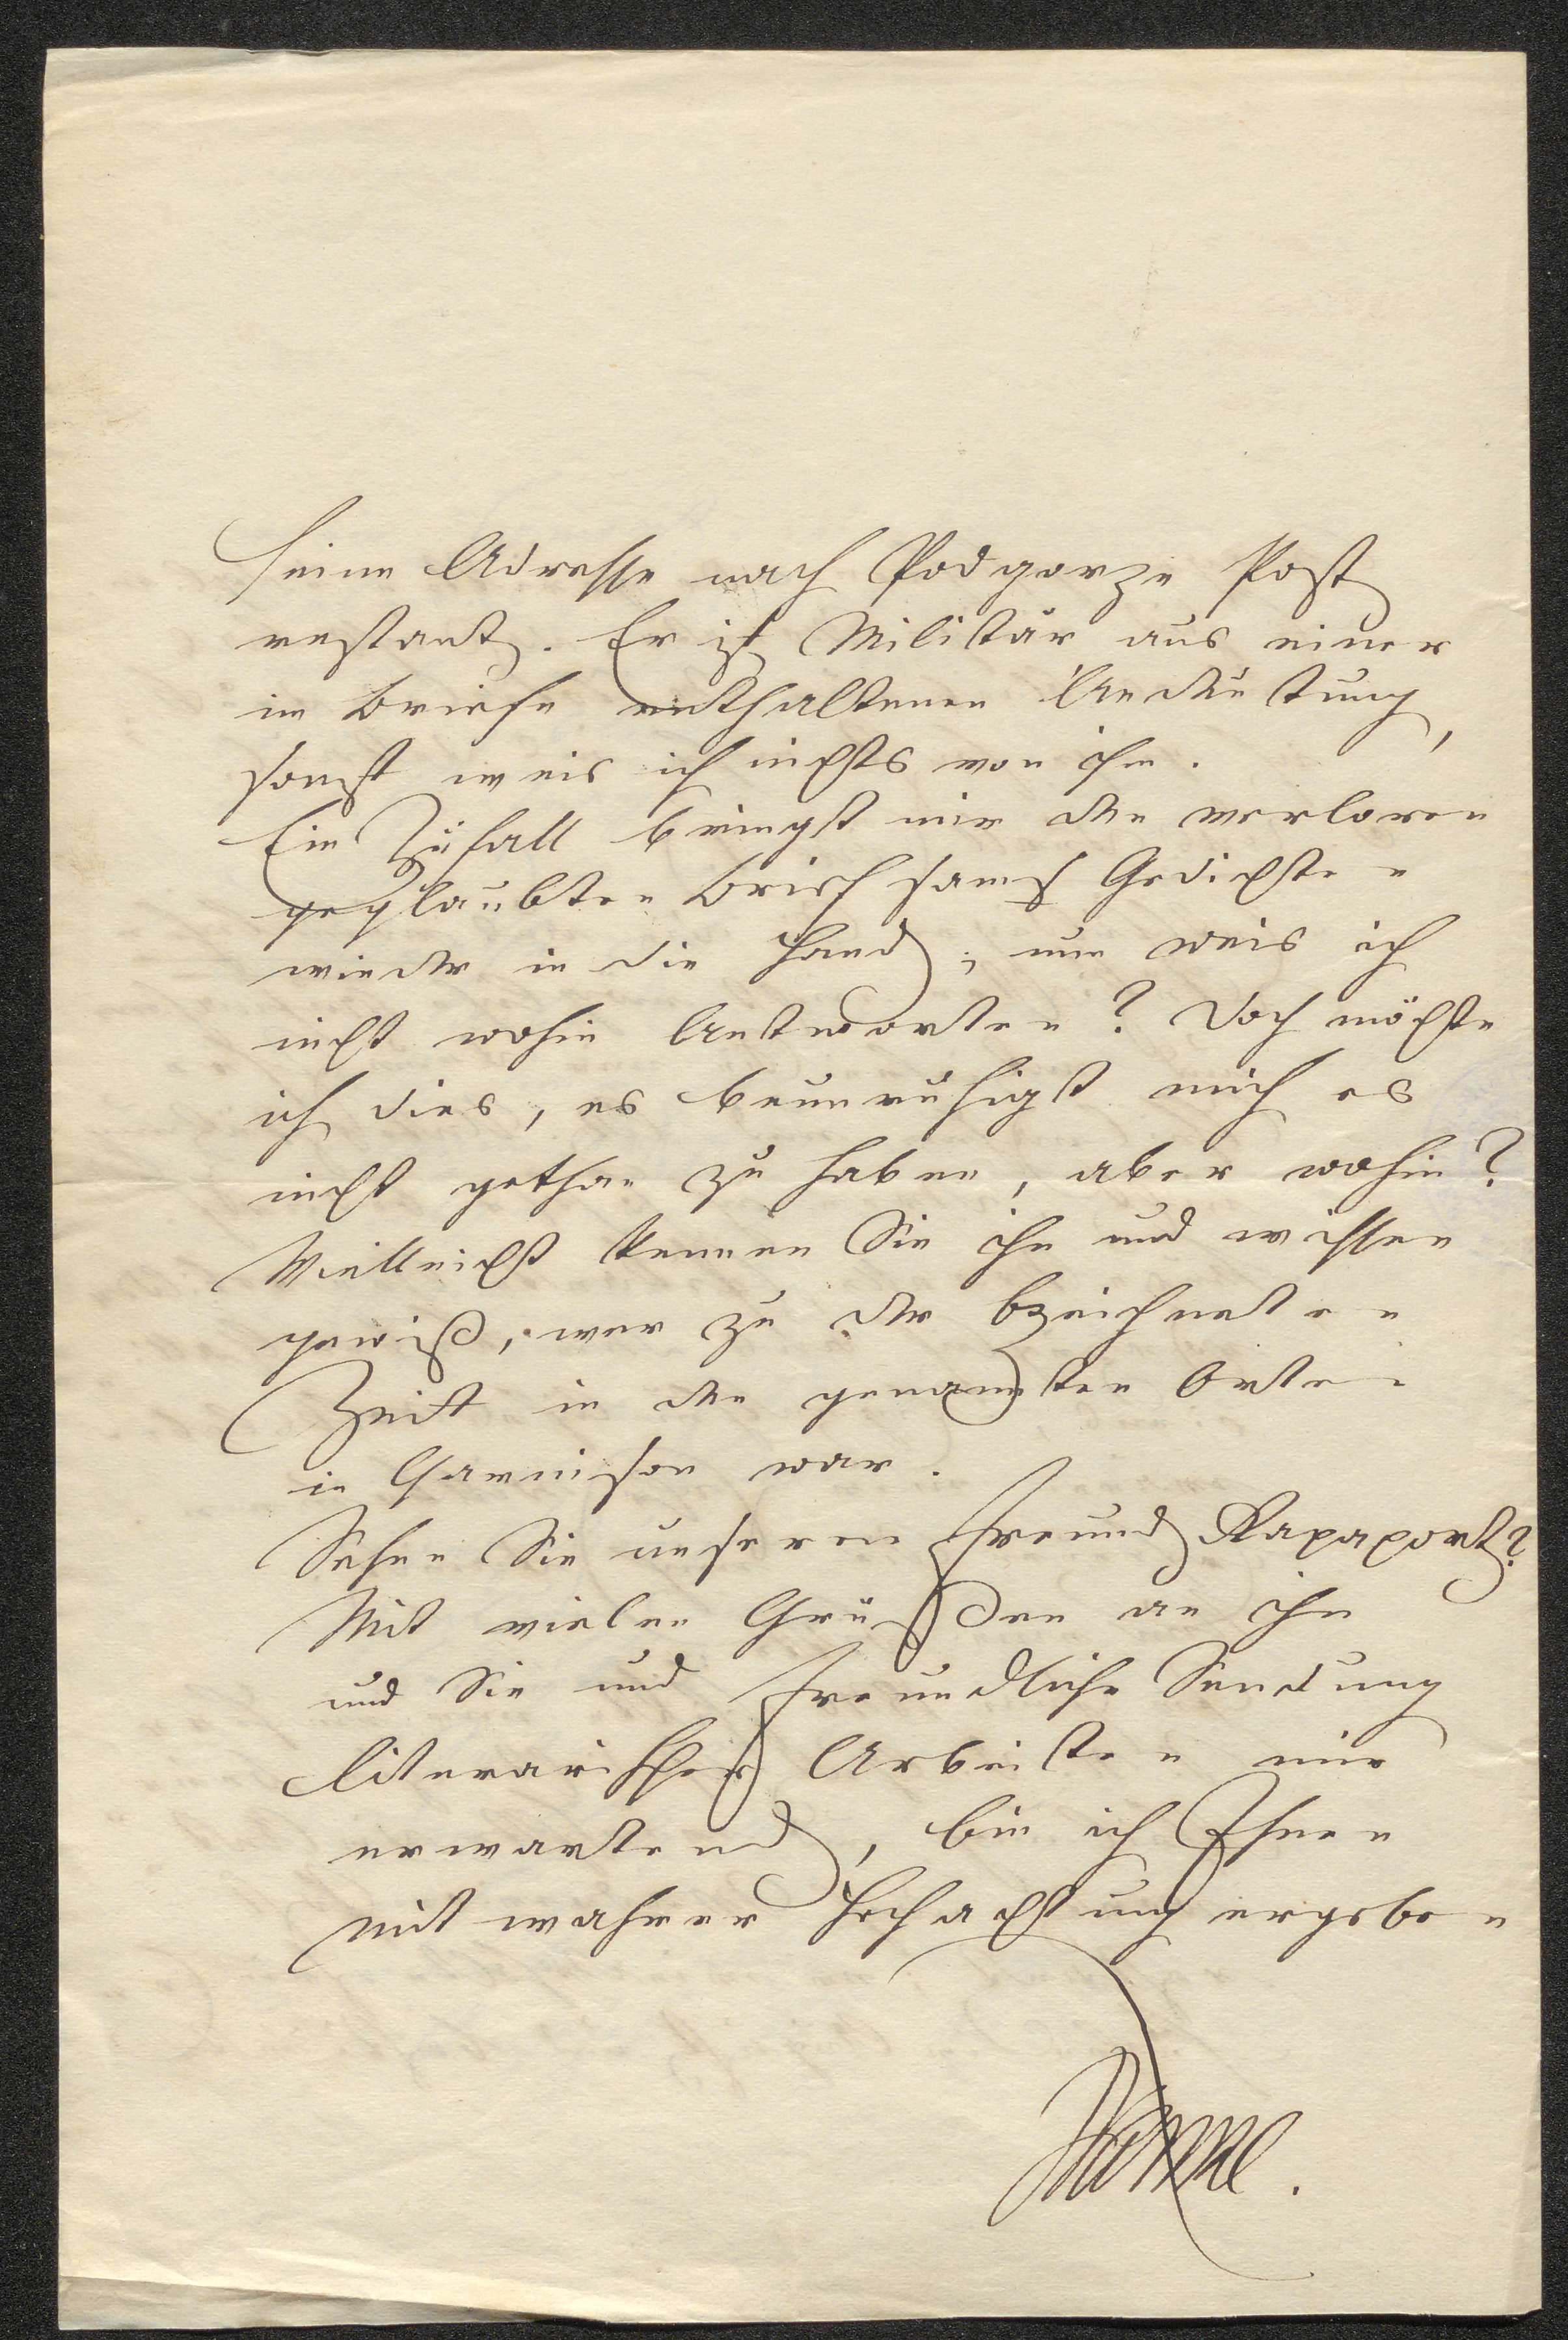 seine Adresse nach Podgorze Post
restant. Er ist Militär aus einer
im Briefe enthaltenen Andeutung,
sonst weis ich nichts von ihm.
Ein Zufall bringt mir den verloren
geglaubten Brief samt Gedichten
wieder in die Hand; nun weis ich
nicht wohin Antworten? Doch möchte
ich dies, es beunruhigt mich es
nicht gethan zu haben, aber wohin?
Vielleicht kennen Sie ihn und wissen
gewiß, wer zu der bezeichneten
Zeit in den genannten Orten
in Garnison war.
Sehen Sie unseren Freund Rapaport?
Mit vielen Grüßen an ihn
und Sie und freundliche Sendung
literarischer Arbeiten mir
erwartend, bin ich Ihnen
mit wahrer Hochachtung ergeben